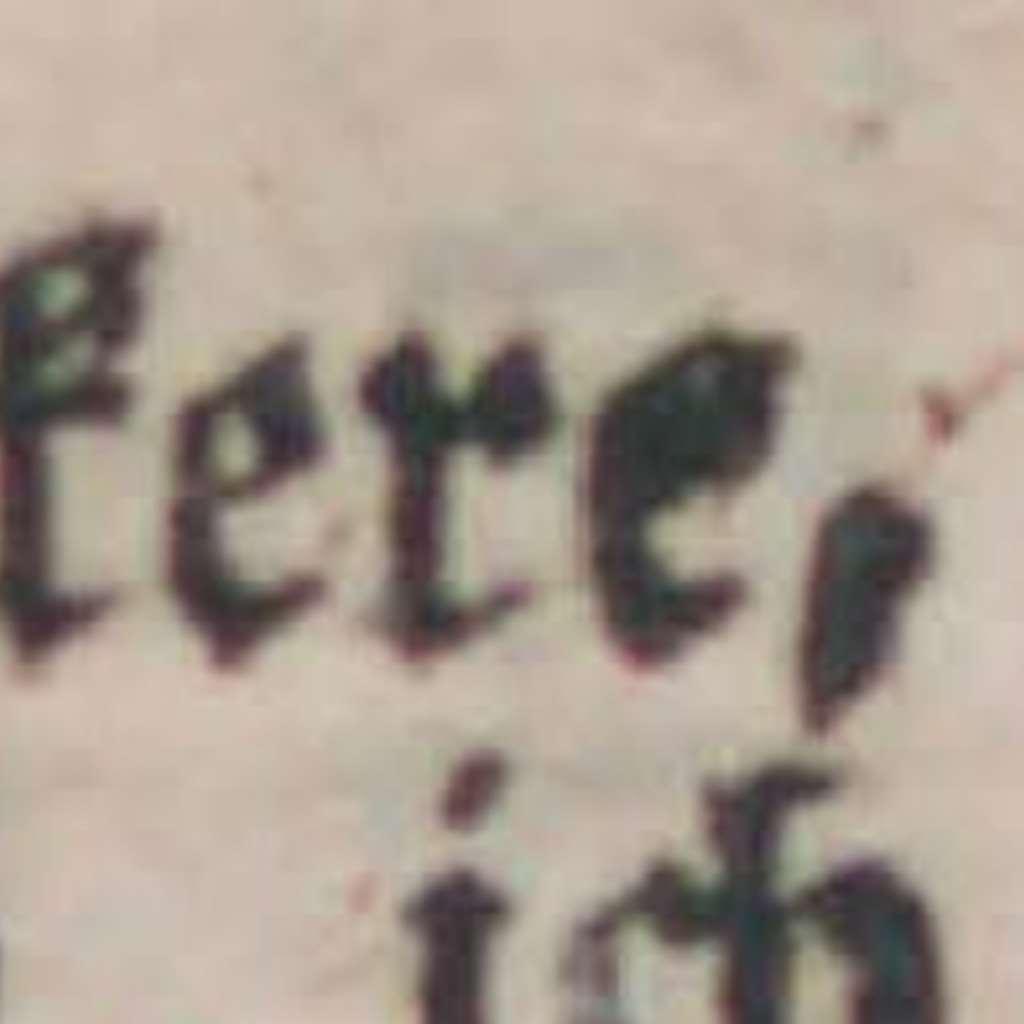 ere,
ich